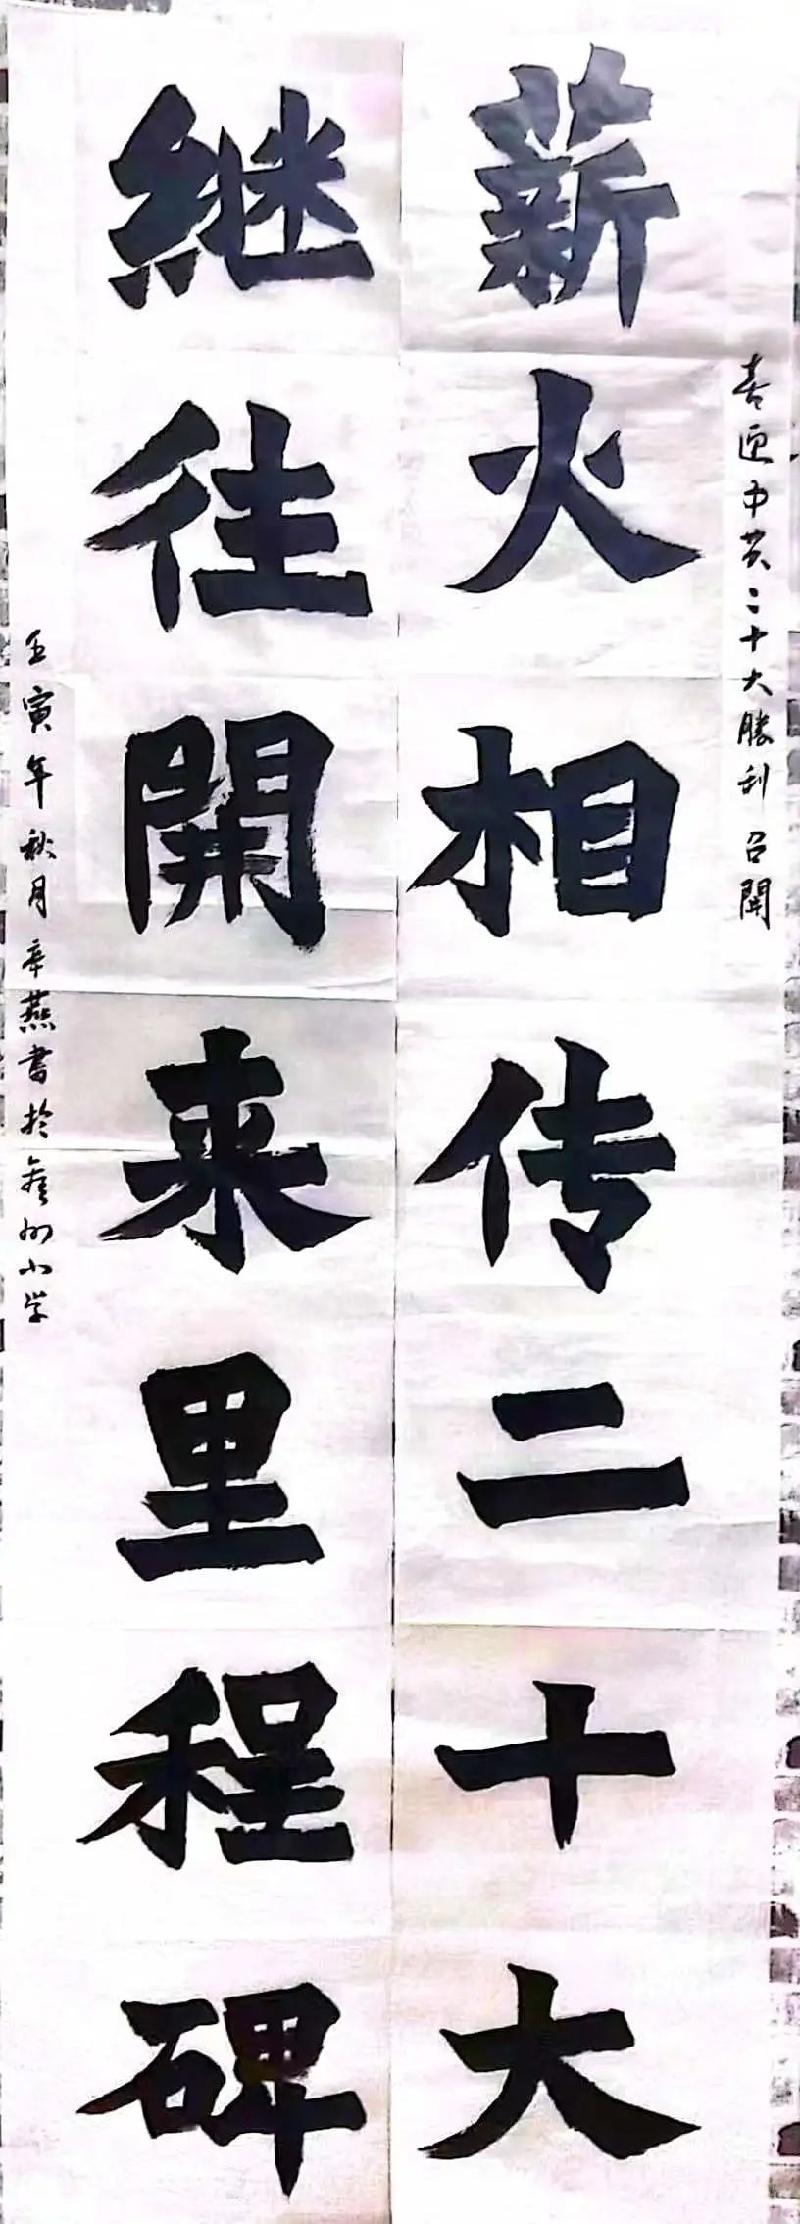 喜迎中共二十大勝利召開
薪火相传二十大
継往開来里程碑
壬寅年秋月辛燕書於金州小学